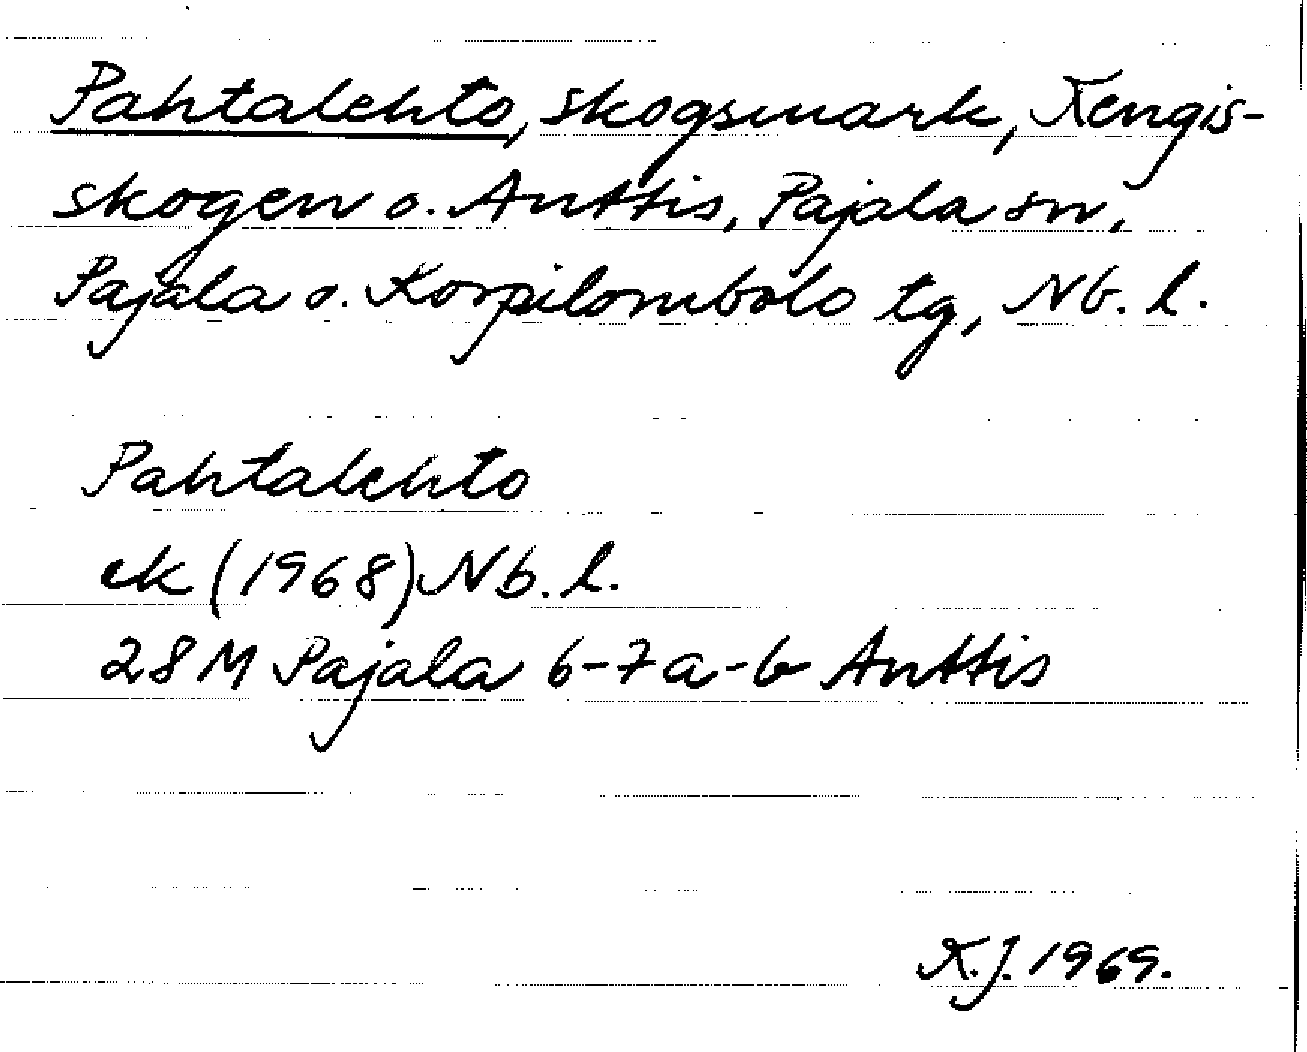 Pahtalehto, skogsmark, Kengis-
skogen o. Anttis, Pajala sn,
Pajala o. Korpilombolo tg, Nb. l.
Pahtalehto
ek (1968) Nb. l.
28 M Pajala 6-7 a-b Anttis
K.J. 1969.